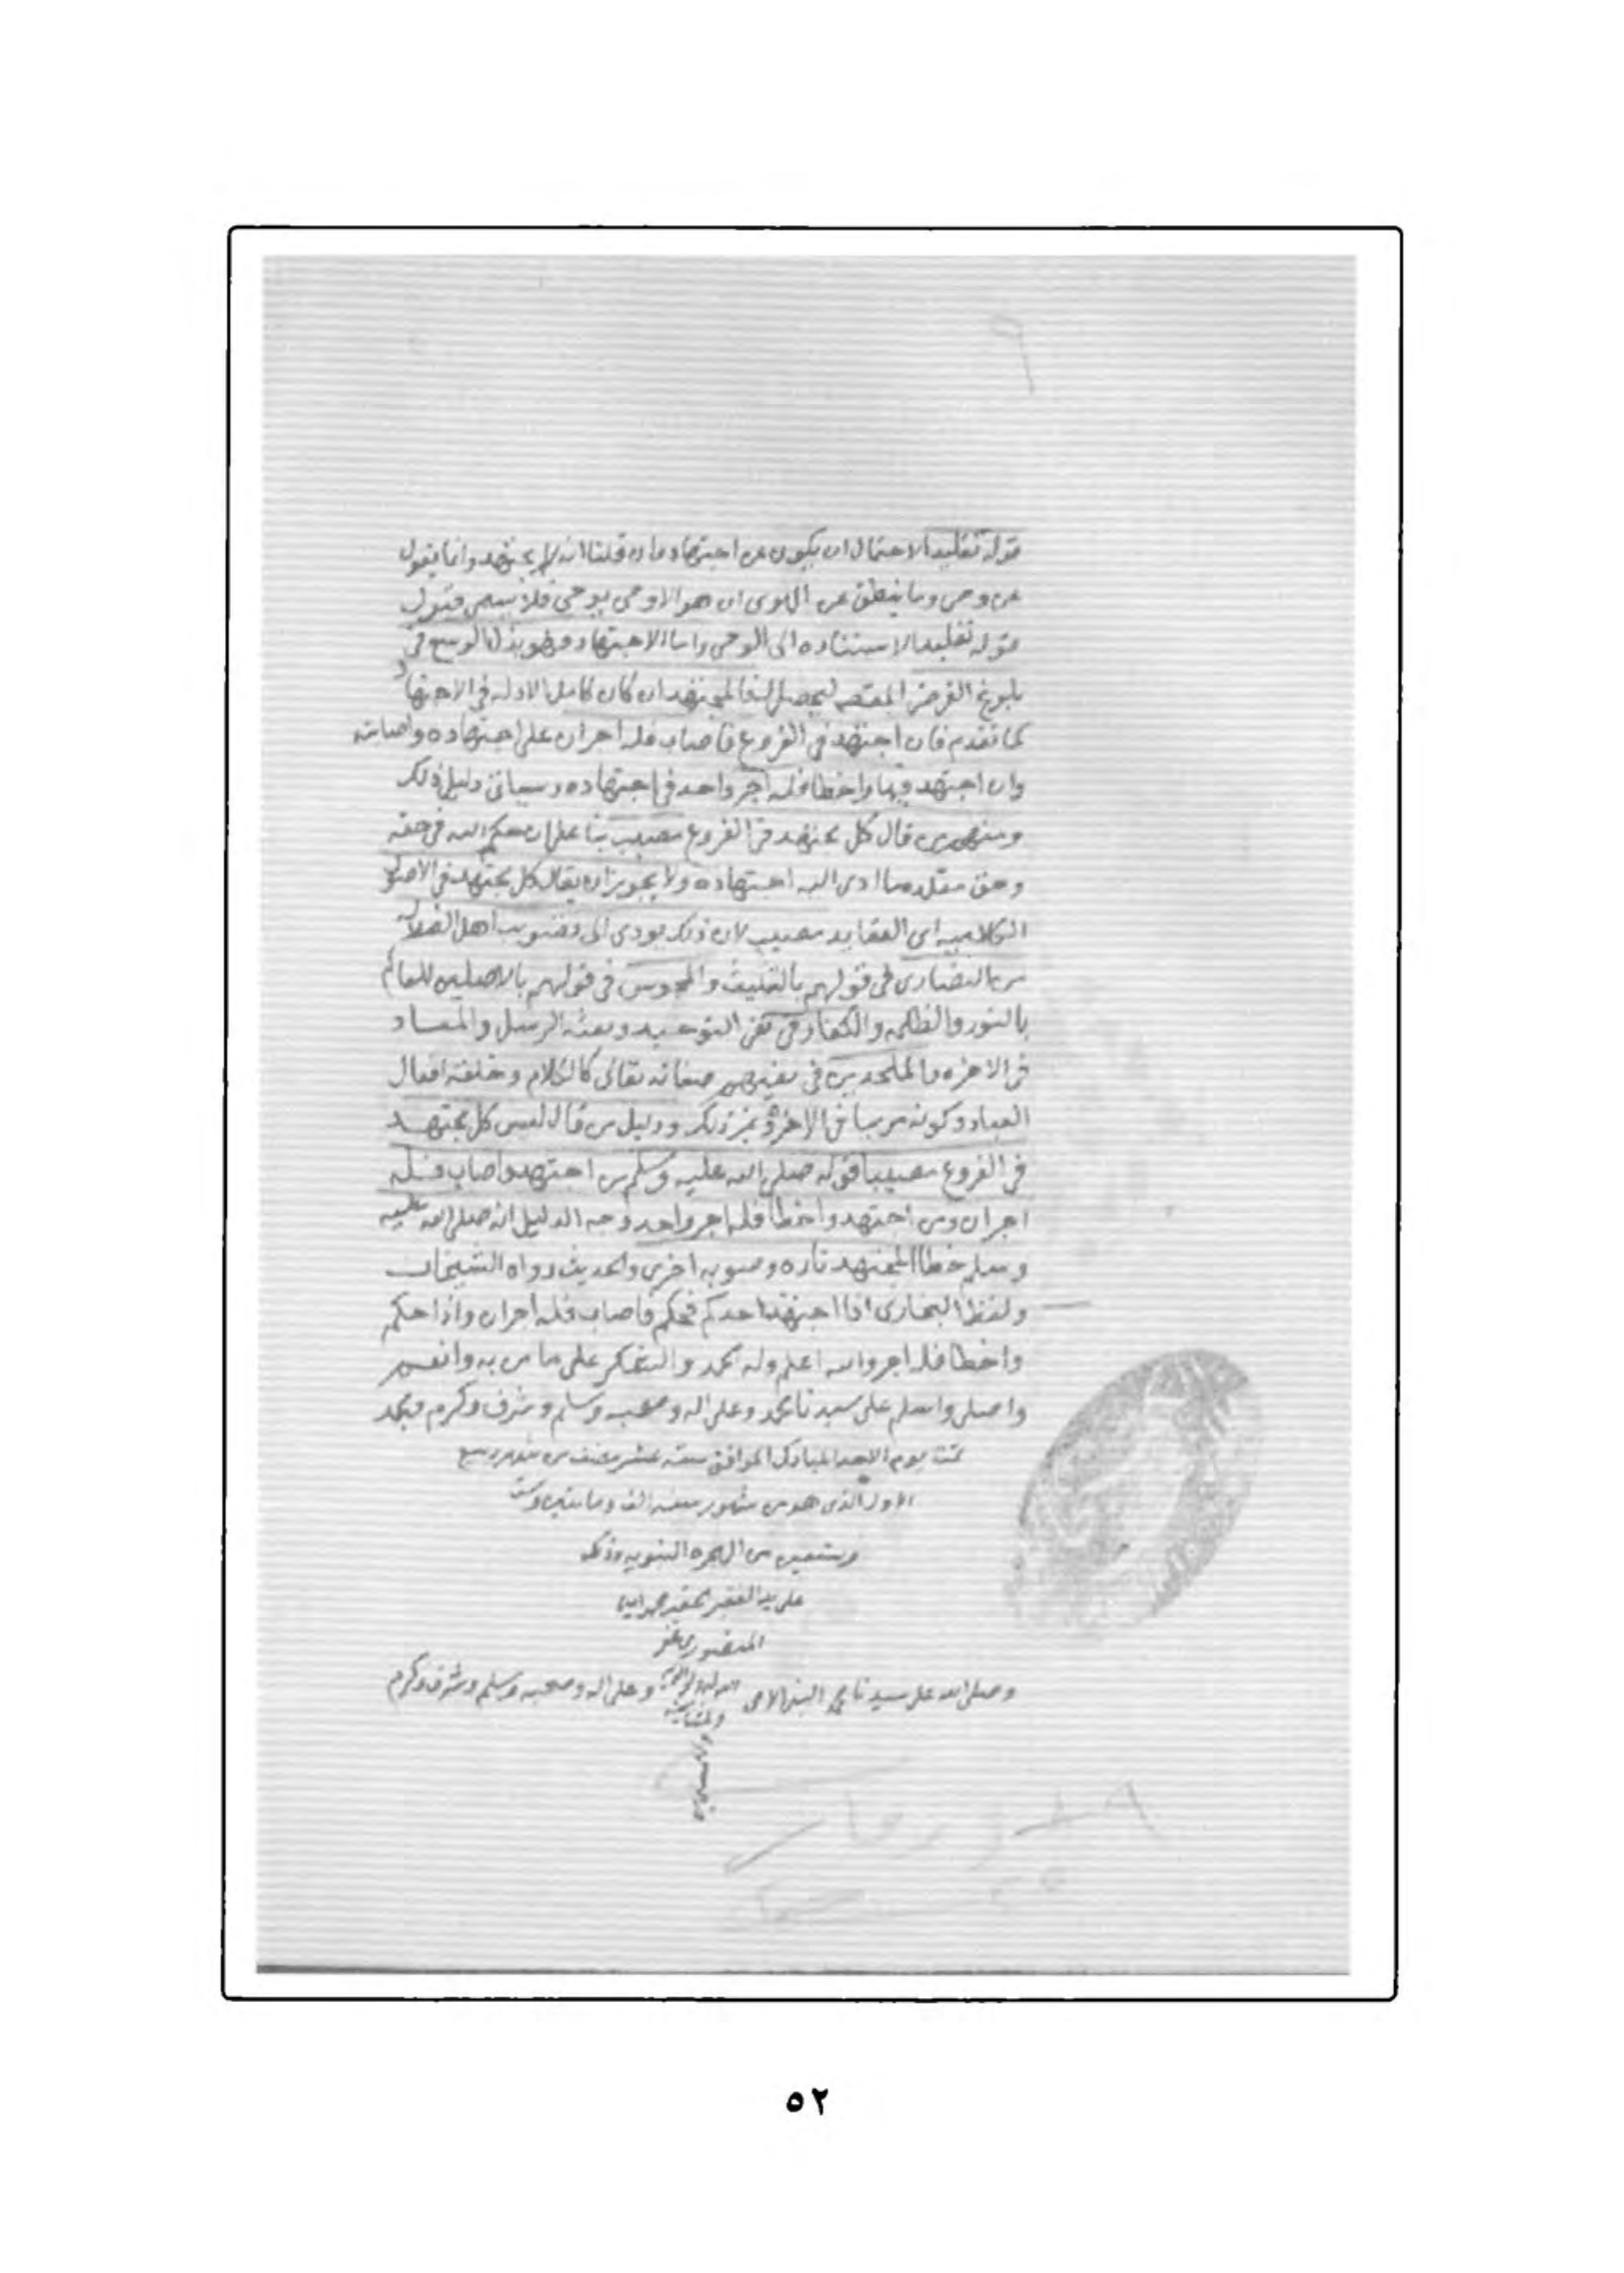 ٩
قوله تقليدا لاحتمال ان يكون عن اجتهاد وان قلنا انه لا يجتهد وانما يقول
عن وحي وما ينطق عن الهوى ان هو الا وحي يوحى فلا يسمى قبول
قوله تقليدا لاستناده الى الوحي واما الاجتهاد فهو بذل الوسع في
بلوغ الغرض المقصود ليحصل له فالمجتهد ان كان كامل الاله في الاجتهاد
كما تقدم فان اجتهد في الفروع فاصاب فله اجران على اجتهاده واصابته
وان اجتهد فيها واخطا فله اجر واحد في اجتهاده وسياتي دليل ذلك
ومنهم من قال كل مجتهد في الفروع مصيب بنا على ان حكم الله في حقه
وحق مقلده ما ادى اليه اجتهاده ولا يجوز ان يقال كل مجتهد في الاصول
الكلاميه اي العقايد مصيب لان ذلك يودي الى تصويب اهل الضلاله
من النصارى في قولهم بالتثليث والمجوس في قولهم بالاصلين للعالم
بالنور والظلمه والكفار في نفي التوحيد وبعثه الرسل والمعاد
في الاخره والملحدين في نفيهم صفاته تعالى كالكلام وخلقه افعال
العباد وكونه مرييا في الاخره وغير ذلك ودليل من قال ليس كل مجتهد
في الفروع مصيبا قوله صلى الله عليه وسلم من اجتهد واصاب فله
اجران ومن اجتهد واخطا فله اجر واحد وجه الدليل انه صلى الله عليه
وسلم خطا المجتهد تاره وصوبه اخرى والحديث رواه الشيخان
ولفظ البخارى اذا اجتهد احدكم فحكم فاصاب فله اجران واذا حكم
واخطا فله اجر والله اعلم وله الحمد والشكر على ما من به وانعم
واصلي واسلم على سيدنا محمد وعلى اله وصحبه وسلم وشرف وكرم ومجد
تمت يوم الاحد المبارك الموافق سته عشر مضت من شهر ربيع
الاول الذى هو من شهور سنه الف ومايتين
وتسعين من الهجره النبويه وذلك
على يد الفقير الحقير محمد
المنصوري غفر
الله له ولوالديه
وصلى الله على سيدنا محمد النبي الامي وعلى اله وصحبه وسلم وشرف وكرم
ولمشايخه
٥٢